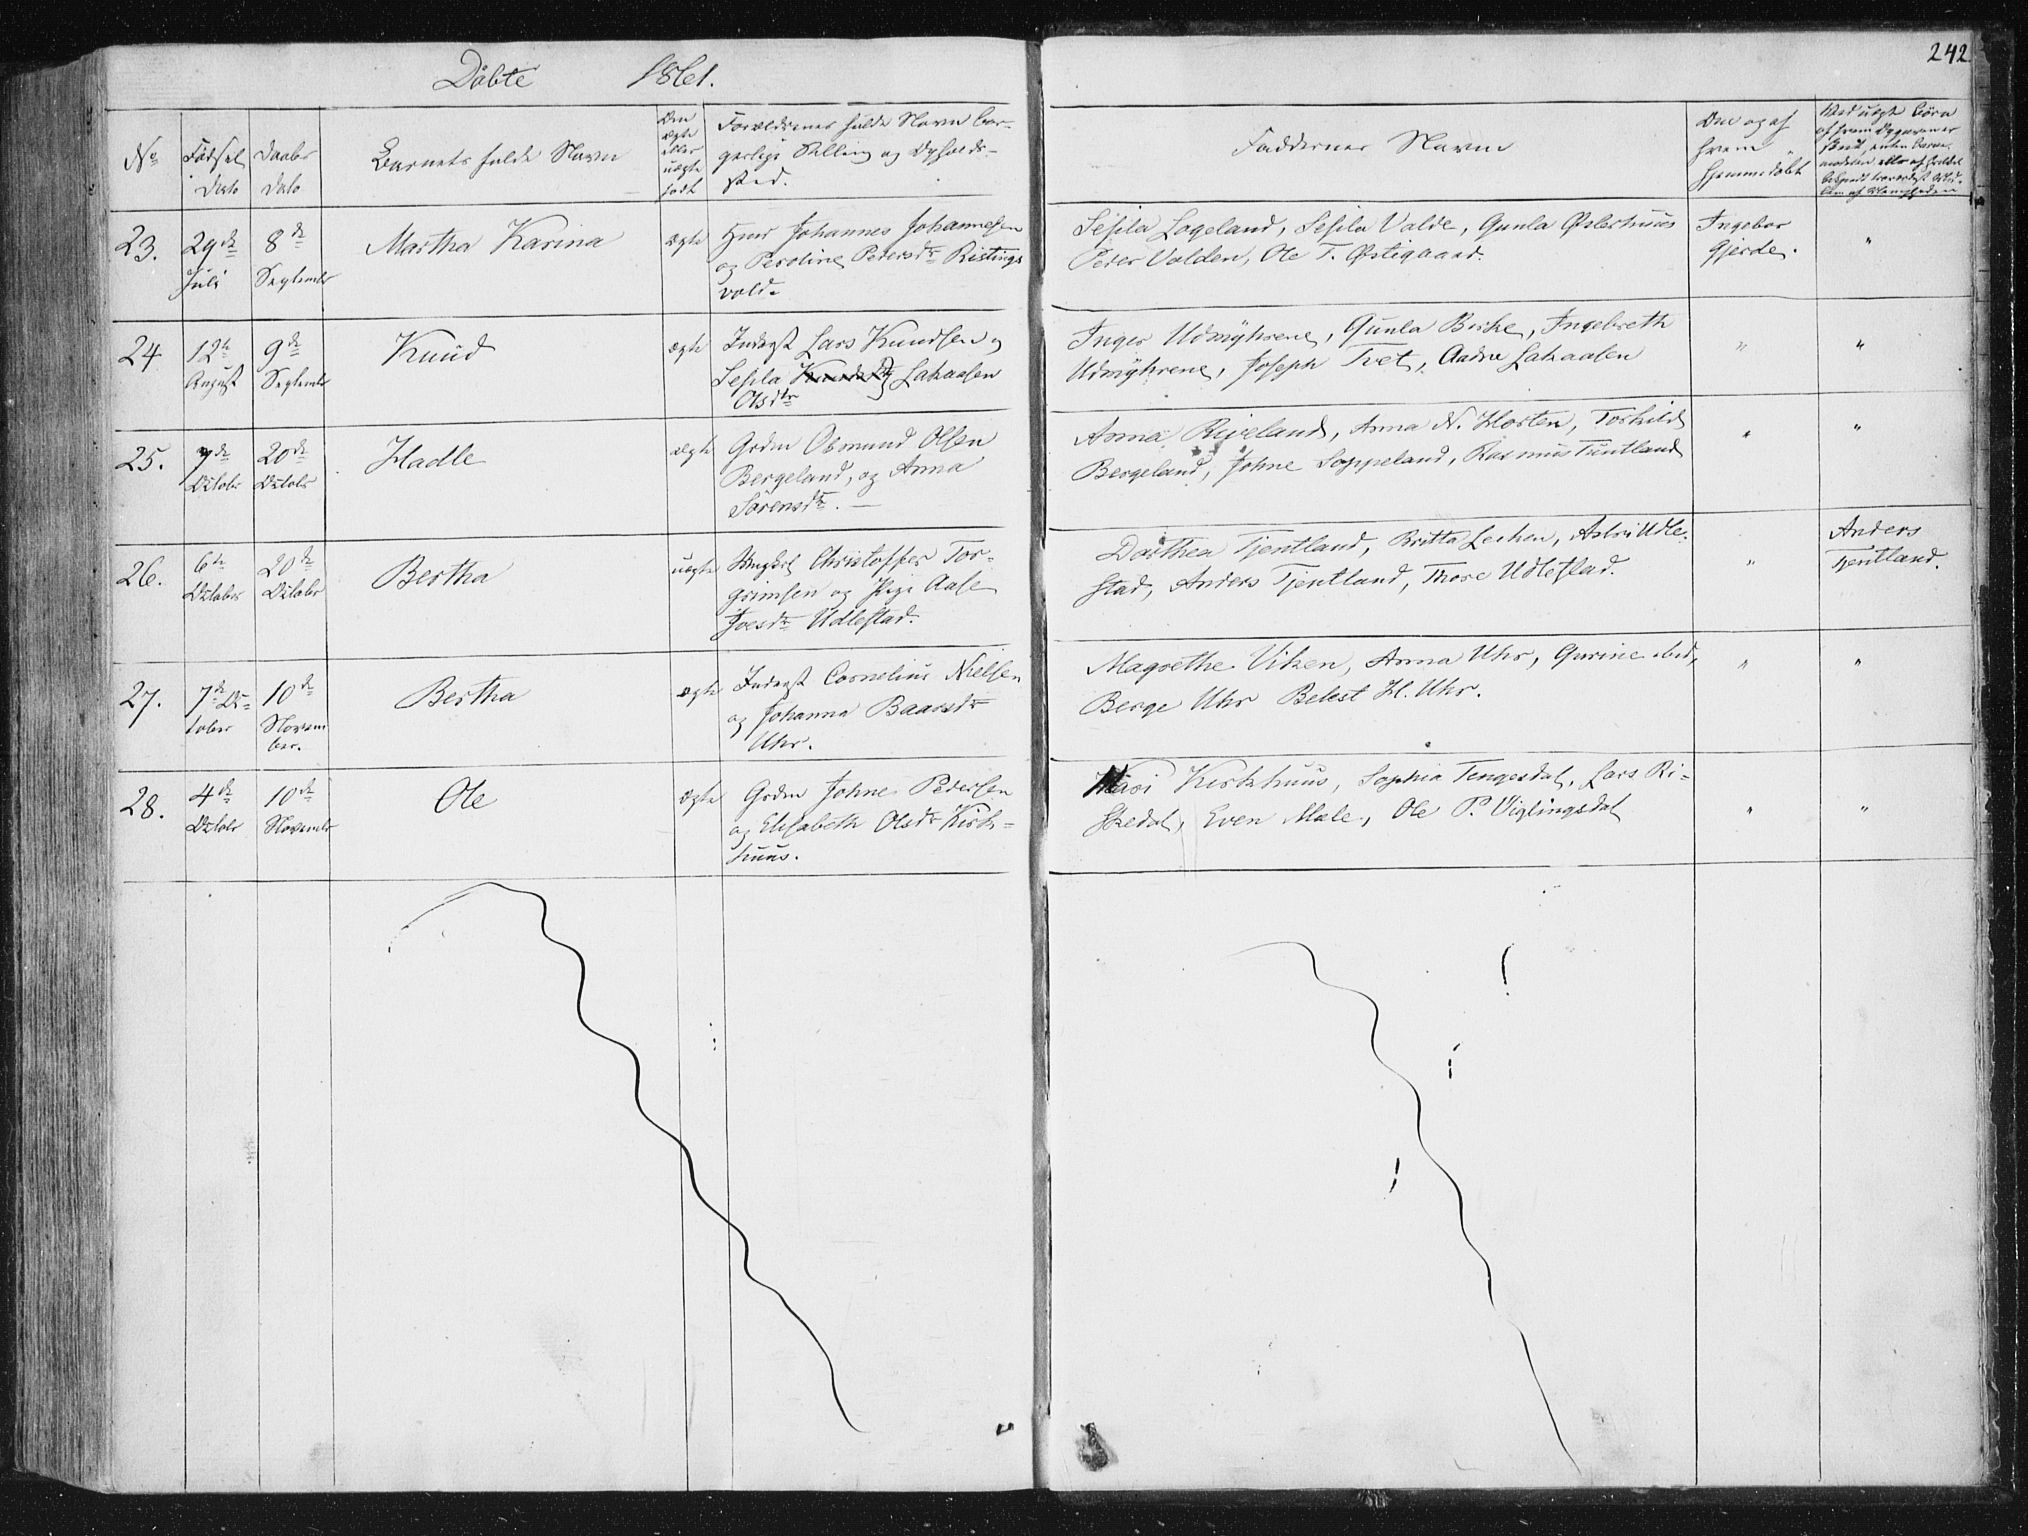 Döbte 1861.
242
No
Födsel
Dato
Daabs
Dato
Barnets fulde Navn
Om
ægte
eller
uægte
født
Forældrenes fulde Navn bor-
gerlige Stilling og Opholds-
sted.
Faddernes Navne
Om og af
hvem
hjemmedøbt
23.
29de
Juli
8de
September
Martha Karina
ægte
Johannes Johannesen
og Peroline Petersdr Ristings
vold.
Sesila Logeland, Sesila Valde, Gunla Østerhuus
Peder Valden, Ole T. Østigaard.
Ingebor
Gjerde.
"
24
12te
August
9de
September
Knud
ægte
Inderst Lars Knudsen og
Sesila Lahaasen
Olsdtr
Inger Udmyhrene, Gunla Birke, Ingebreth
Udmyhrene, Joseph Tvet, Aadne Lahaasen
"
"
25.
7de
October
20de
October
Hadle
ægte
Grdm Osmund Olsen
Bergeland, og Anna
Sörensdtr. —
Anna Riveland, Anna N. Horten, Torkild
Bergeland, Johne Soppeland, Rasmus Tuntland
"
"
26.
6te
October
20de
October
Bertha
uægte
Ungkrl Christoffer Tor-
grimsen og Pige Aase
Ivesdtr Udlestad.
Dorthea Tjentland, Britta Lechen, Astri Udle-
stad, Anders Tjentland, Thore Udlestad.
"
Anders
Tjentland.
27.
7de Oc-
tober
10de
Novem
ber.
Bertha
ægte
Inderst Cornelius Nielsen
og Johanna Baarsdtr
Uhr.
Magrethe Viken, Anna Uhr, Gurine ibid,
Berge Uhr Belest H. Uhr.
"
"
28.
4de
October
10de
November
Ole
ægte
Grdm Johne Pedersen
og Elisabeth Olsdtr Kirk-
huus.
Kari Kirkhuus, Sophia Tengesdal, Lars Ri-
skedal, Even Mæle, Ole P. Viglingsdal
"
"